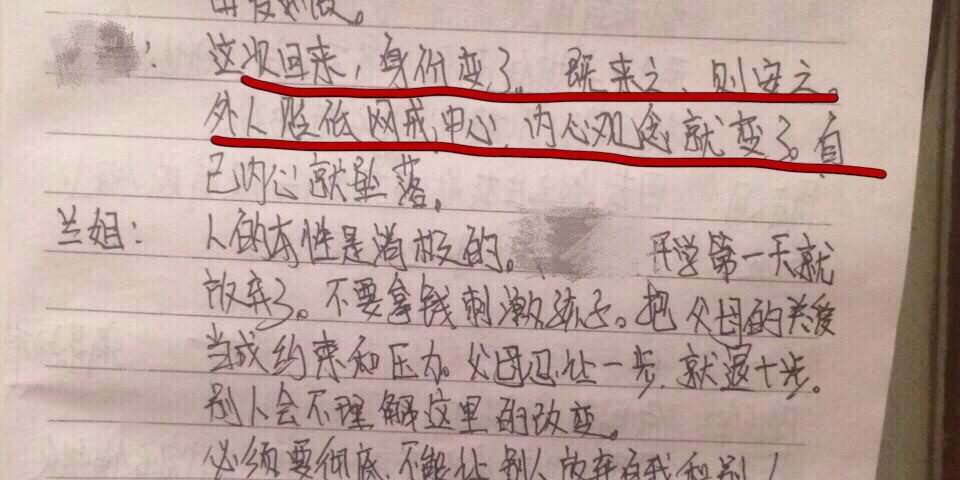 研发刻度。
：这次回来，身份变了。既来之，则安之。
外人贬低网戒中心，内心观念就变了。自
己内心就坠落。
兰姐：人的本性是消极的。 开学第一天就
放弃了。不要拿钱刺激孩子。把父母的关爱
当成约束和压力。父母忍让一步，就退十步。
别人会不理解这里的改变。
必须要彻底，不能让别人放弃自我和别人